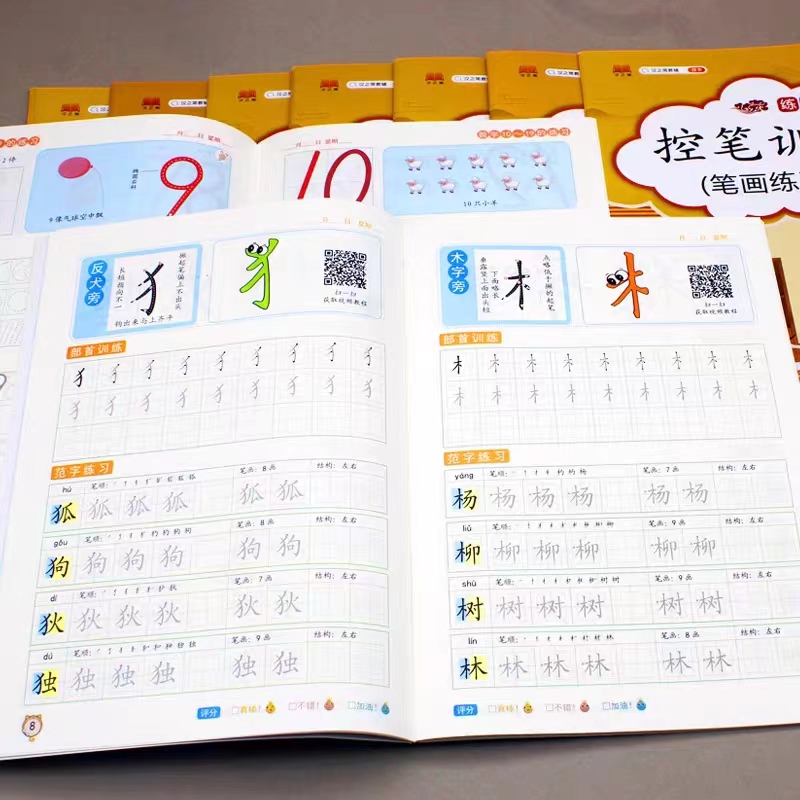 汉之简教辅
汉之简教辅
汉之简教辅
练
控笔训
(笔画练
月 日 星期
月 日 星期
数字10~19的练习
9
9像气球空中飘
10
10只小羊
月 日 星期
反犬旁
撇起笔偏上不出头
长短指向不一
钩出来与上齐平
犭
犭
扫一扫
获取视频教程
部首训练
犭 犭 犭 犭 犭 犭 犭 犭
犭 犭 犭 犭 犭 犭 犭 犭
范字练习
hú 笔顺: 笔画:8画 结构:左右
狐 狐 狐 狐 狐 狐 狐
gǒu 笔顺: 笔画:8画 结构:左右
狗 狗 狗 狗 狗 狗
dí 笔顺: 笔画:7画 结构:左右
狄 狄 狄 狄 狄 狄
dú 笔顺: 笔画:9画 结构:左右
独 独 独 独 独 独
评分 □真棒! □不错! □加油!
8
月 日 星期
木字旁
点略低于横的起笔
下面略长
垂露竖上面出头短
木
木
扫一扫
获取视频教程
部首训练
木 木 木 木 木 木 木 木 木
木 木 木 木 木 木 木 木 木
范字练习
yáng 笔顺: 笔画:7画 结构:左右
杨 杨 杨 杨 杨 杨
liǔ 笔顺: 笔画:9画 结构:左右
柳 柳 柳 柳 柳 柳
shù 笔顺: 笔画:9画 结构:左右
树 树 树 树 树 树
lín 笔顺: 笔画:8画 结构:左右
林 林 林 林 林 林
评分 □真棒! □不错! □加油!